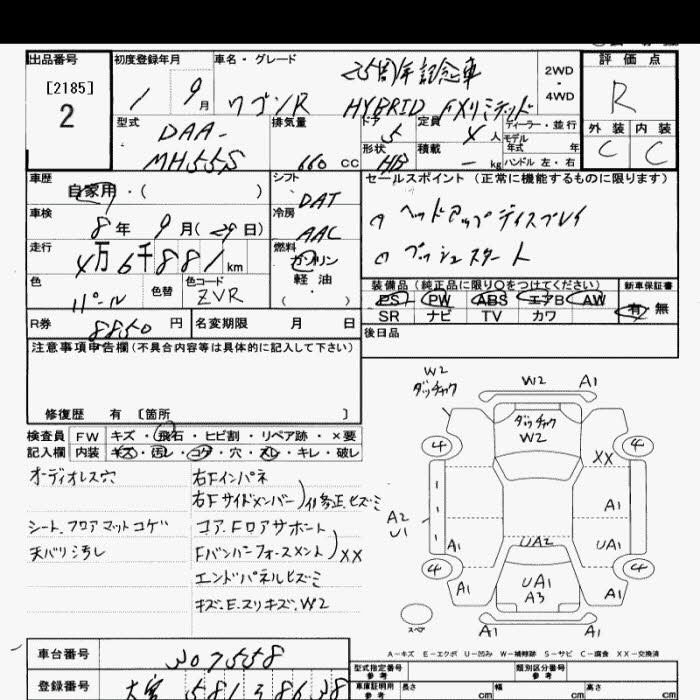 出品番号
[2185]
2
初度登録年月
1 9月
車名・グレード
25周年記念車
ワゴンR HYBRID FXリミテッド
2WD・4WD
評価点
R
外装 内装
C C
型式
DAA-
MH55S
排気量
660 cc
ドア
5
定員
4 人
ディーラー・並行
モデル
年式 年
形状
HB
積載
- kg
ハンドル 左・右
車歴
自家用・( )
シフト
DAT
セールスポイント (正常に機能するものに限ります)
ヘッドアップディスプレイ
プッシュスタート
車検
8年 9月(29日)
冷房
AAC
走行
4万6千881km
燃料
ガソリン
軽油
( )
色
パール
色替
色コード
ZVR
装備品 (純正品に限り〇をつけてください)
PS PW ABS エアB AW
SR ナビ TV カワ
新車保証書
有 無
R券
8850 円
名変期限 月 日
後日品
注意事項申告欄(不具合内容等は具体的に記入して下さい)
修復歴 有 〔箇所 〕
検査員
記入欄
FW キズ・飛石・ヒビ割・リペア跡・×要
内装 キズ・汚レ・コゲ・穴・スレ・キレ・破レ
オーディオレス穴
シート、フロアマットコゲ
天バリ汚し
右Fインパネ
右Fサイドメンバー
修正、ヒズミ
コア、Fロアサポート
Fバンパーフォースメント
XX
エンドパネルヒズミ
キズ、E、スリキズ、W2
W2
ダッチャク
W2
A1
ダッチャク
W2
4
4
XX
A1
A2
U1
A1
UA2
UA1
4
4
A1
UA1
A3
A1
スペア
A1
A1
A-キズ E-エクボ U-凹み W-補修跡 S-サビ C-腐食 XX-交換済
車台番号
307558
登録番号
大宮 581 3 8638
型式指定番号
参考
類別区分番号
参考
車庫証明用
参考
長さ cm
幅 cm
高さ cm